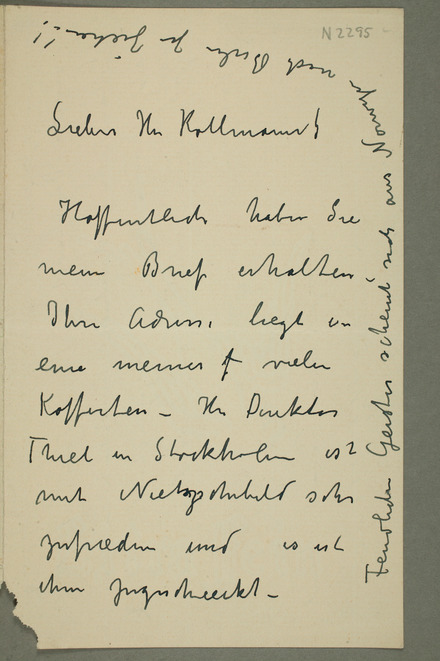 N 2295
Lieber Herr Kollmann!
Hoffentlich haben Sie
mein Brief erhalten.
Ihre Adresse liegt in
eine meiner vielen
Kofferten – Herr Direktor
Thiel in Stockholm ist
mit Nietzschebild sehr
zufrieden und es ist
ihm zugeschickt –
scheint sich aus Norwegen
nach Berlin zu